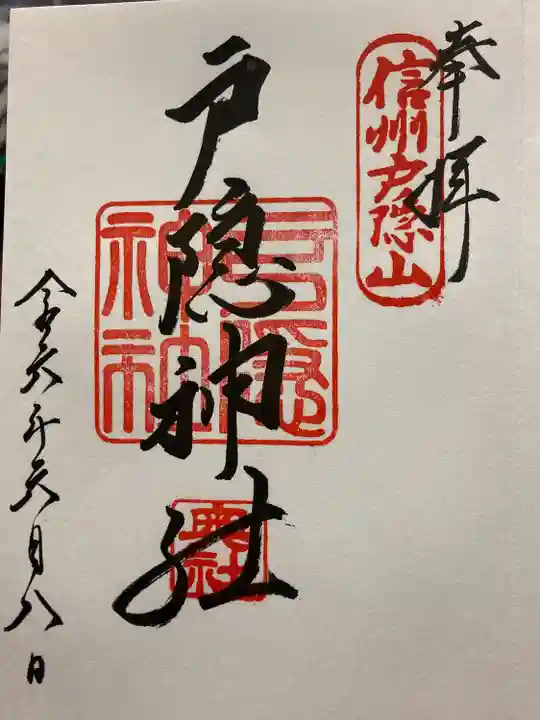 奉拝
信州戸隠山
戸隠神社
戸隠
神社
奥社
令六年六月八日